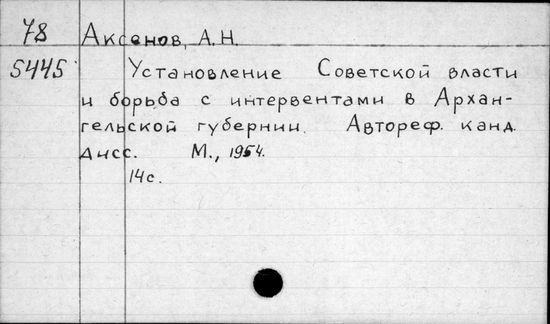 78 Аксенов, А.Н.
5445 Установление Советской власти
и борьба с интервентами в Архан-
гельской губернии. Автореф. канд.
дисс. М., 1954.
14с.